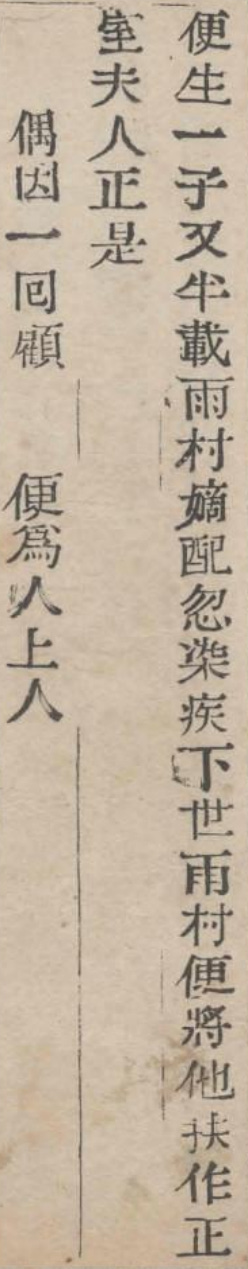 便生一子又半載雨村嫡配忽染疾下世雨村便將他扶作正
室夫人正是
偶因一回顧　便爲人上人